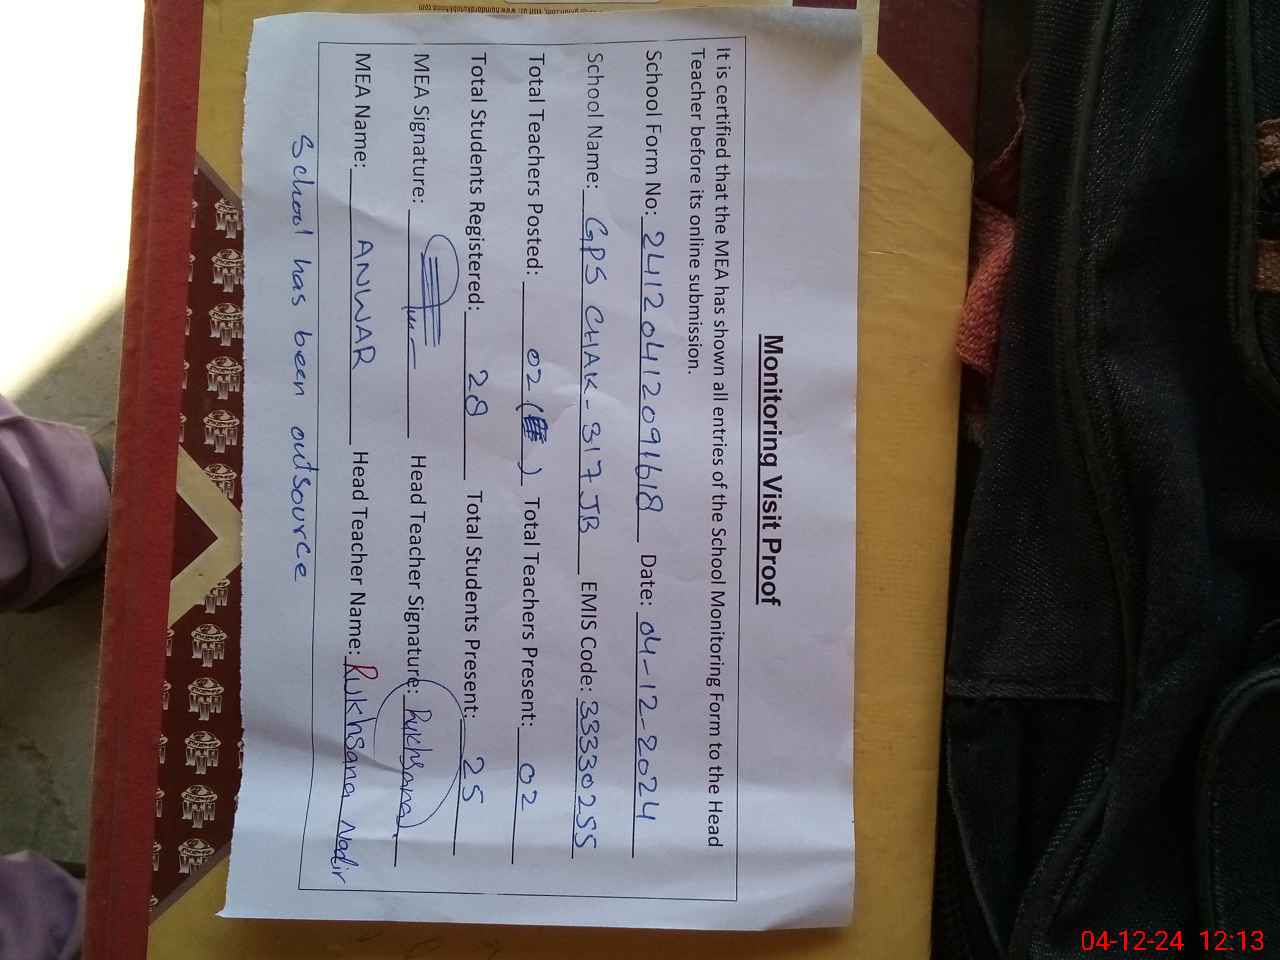 Monitoring Visit Proof
It is certified that the MEA has shown all entries of the School Monitoring Form to the Head
Teacher before its online submission.
School Form No: 24120412091618 Date: 04-12-2024
School Name: GPS CHAK-317 JB EMIS Code: 33330255
Total Teachers Posted: 02 ( ) Total Teachers Present: 02
Total Students Registered: 28 Total Students Present: 25
MEA Signature: Head Teacher Signature: Rukhsana
MEA Name: ANWAR Head Teacher Name: Rukhsana Nadir
School has been outsource
04-12-24 12:13